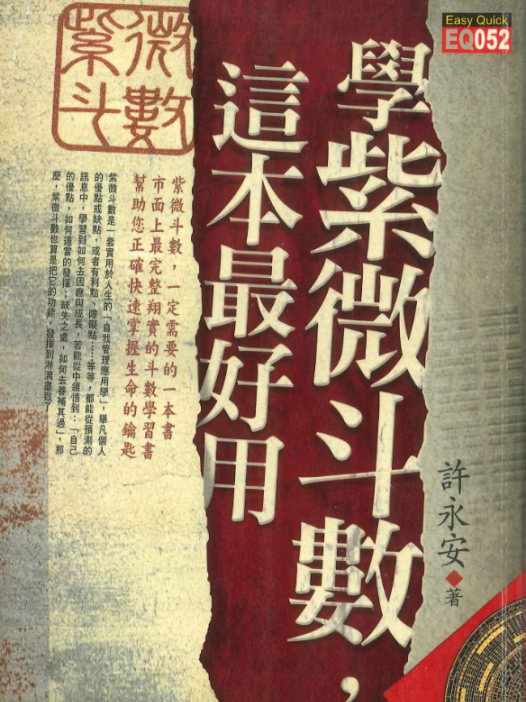 Easy Quick
EQ052
學紫微斗數，
這本最好用
許永安◆著
紫微斗數
紫微斗數，一定需要的一本書
市面上最完整翔實的斗數學習書
幫助您正確快速掌握生命的鑰匙
紫微斗數是一套實用於人生的「自我管理應用學」，舉凡個人
的優點或缺點，或者有利點、障礙點……等等，都能從預測的
訊息中，學習到如何去因應與成長，若能從中領悟到：「自己
的優點，如何適當的發揮；缺失之處，如何去善補其過」，那
麼，紫微斗數也算是把它的功能，發揮到淋漓盡致了